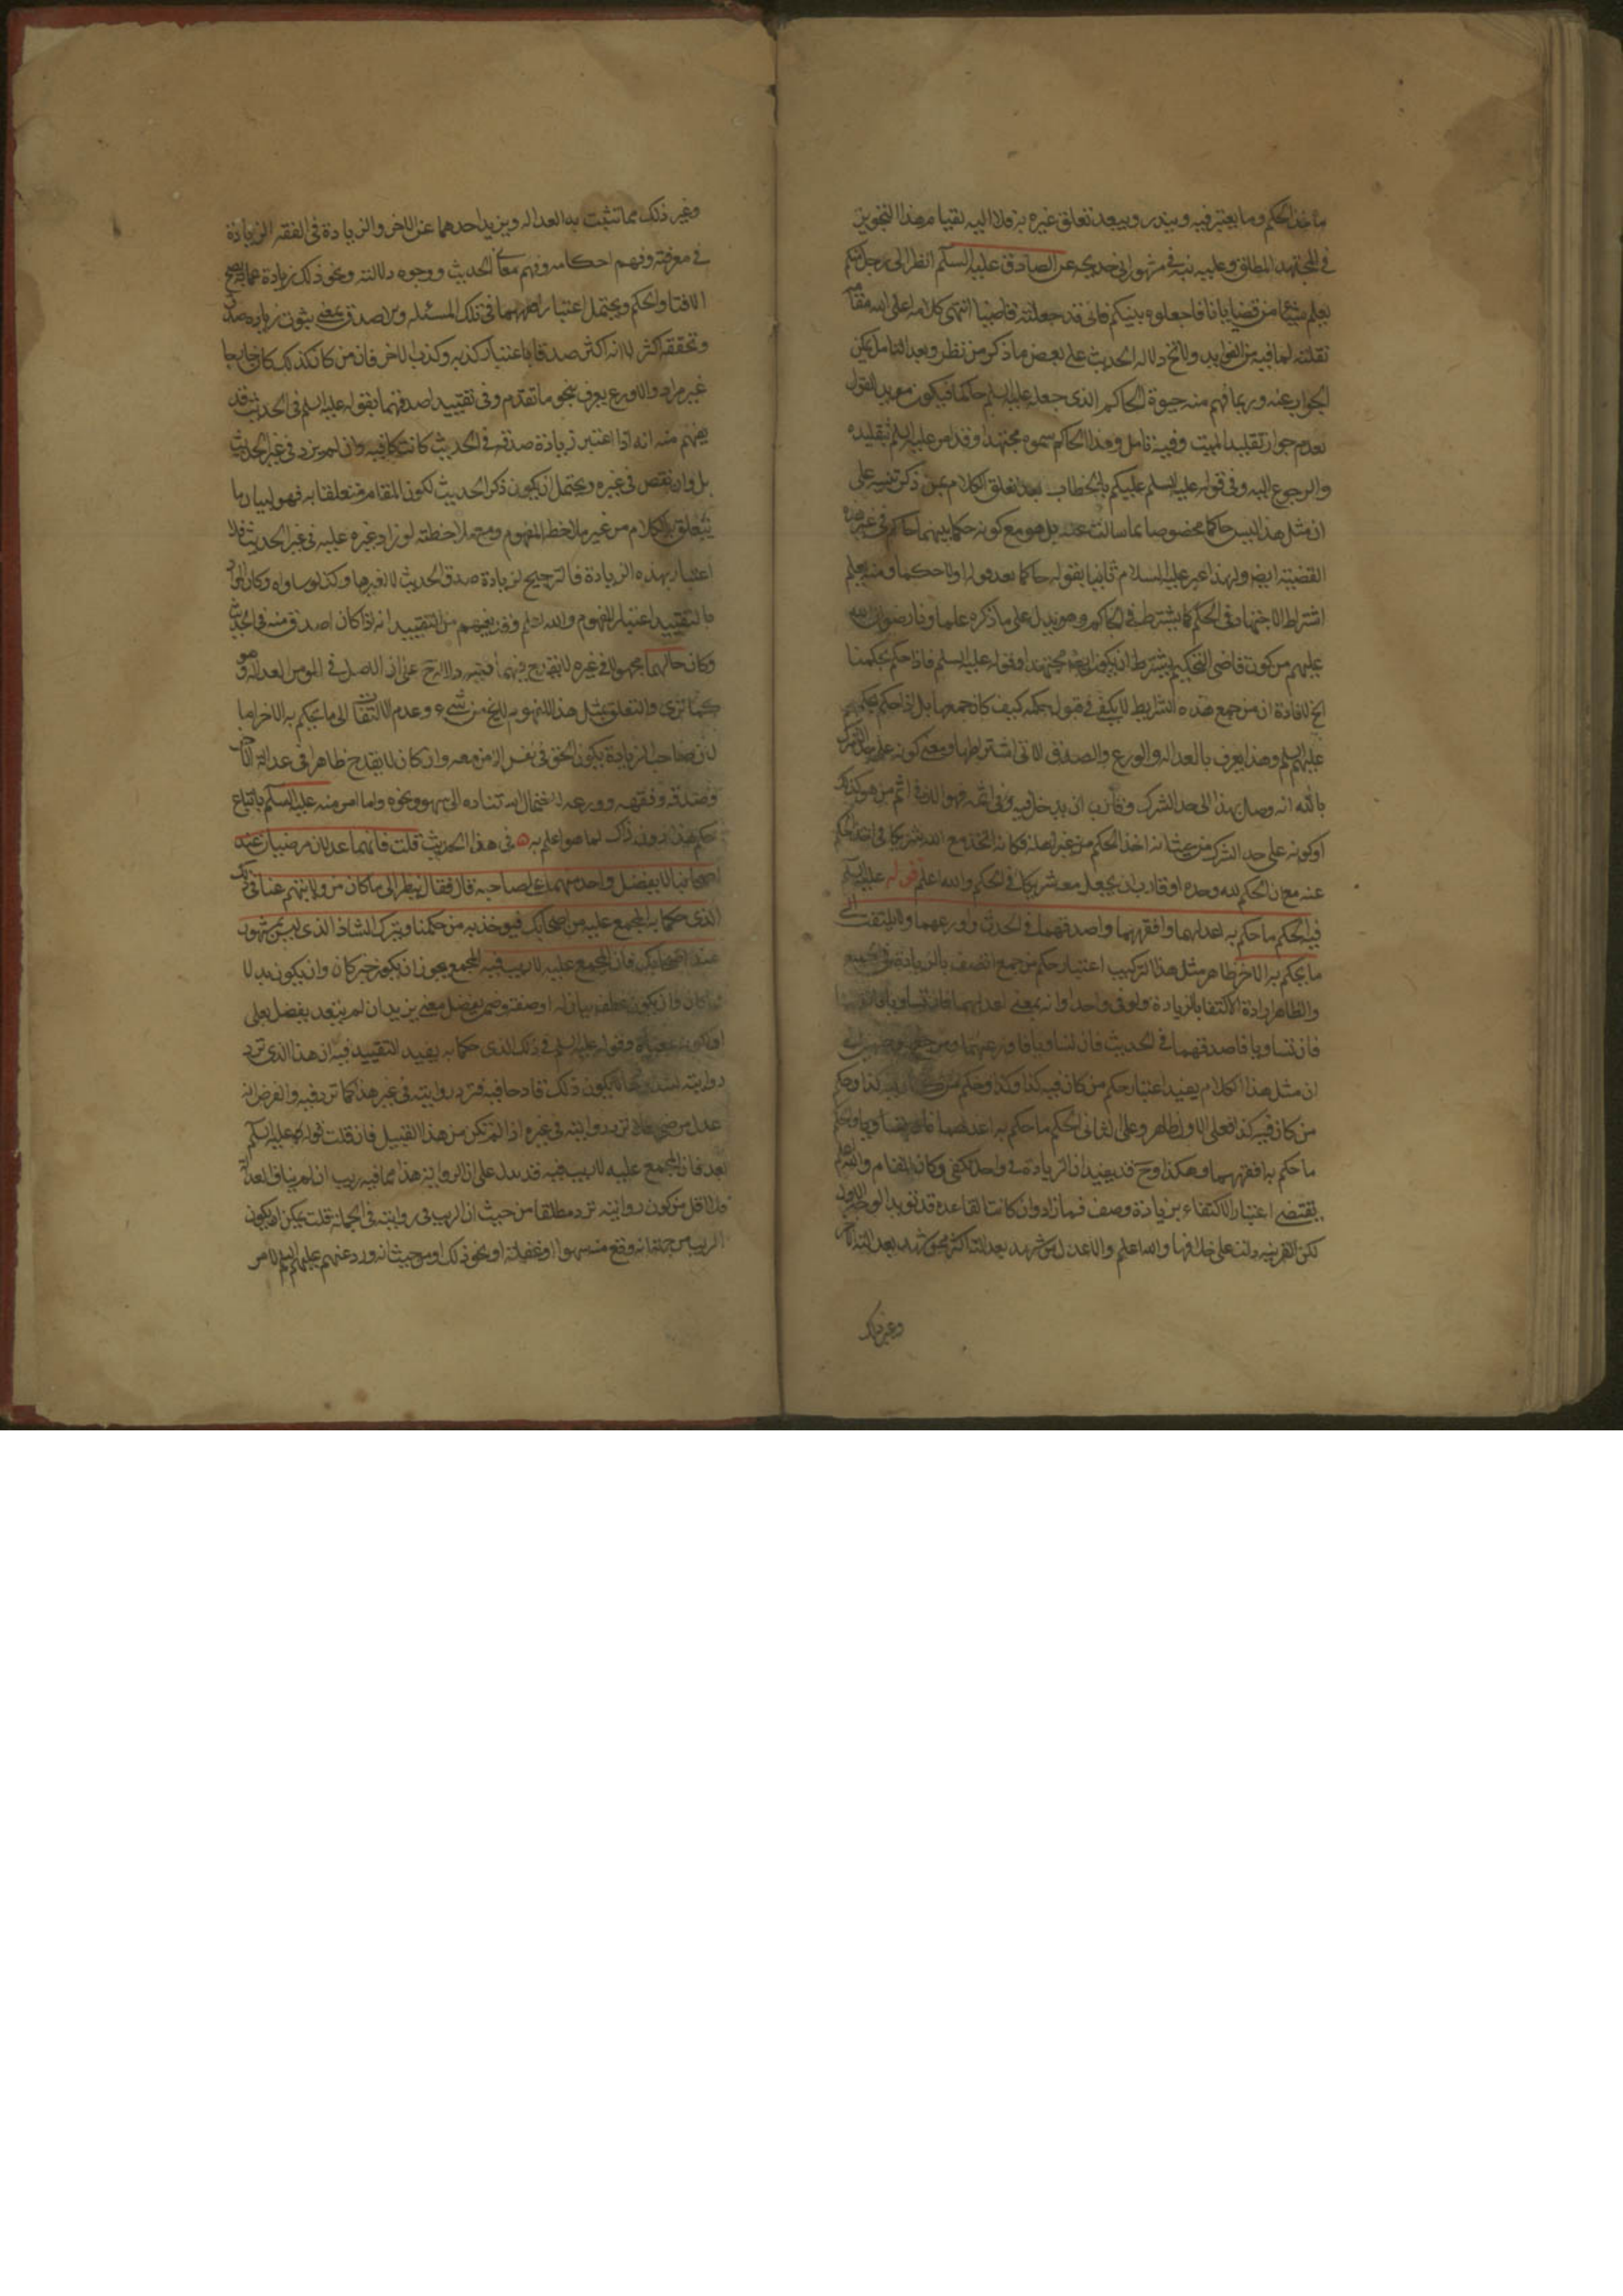 ماخذ الحكم وما يعتبر فيه ويندر ويبعد تعلق غيره به فلا اليه بقيا مرهذا التجويز
في المجتهد المطلق وعليه نبه في مشهور ابي خديجه عن الصادق عليه السلم انظر الى رجل منكم
يعلم شيئا من قضايانا فاجعلوه بينكم فاني قد جعلته قاضيا انتهى كلامه اعلى الله مقامه
نقلته لما فيه من الفوايد ولا يخ دلاله الحديث على بعض ما ذكر من نظر وبعد التامل يمكن
الجواب عنه وربما فهم منه حيوة الحاكم الذي جعله عليه السلم حاكما فيكون مؤيدا لقول
بعدم جواز تقليد الميت وفيه تامل وهذا الحاكم سموه مجتهدا وقد امر عليه السلم بتقليده
والرجوع اليه وفي قوله عليه السلم عليكم بالخطاب بعد تعلق الكلام بمن ذكر تنبيه على
ان مثل هذا ليس حاكما مخصوصا بما سالت عنه بل هو مع كونه حكما بينهما حاكم في غير هذه
القضية ايضا ولهذا عبر عليه السلام ثانيا بقوله حاكما بعد قوله اولا حكما ومنه يعلم
اشتراط الاجتهاد في الحكم كما يشترط في الحاكم وهو يدل على ما ذكره علماونا رضوان الله
عليهم من كون قاضي التحكيم يشترط ان يكون مجتهدا وقوله عليه السلم فاذا حكم بحكمنا
الخ لافادة ان من جمع هذه الشرايط لا يكفى في قبول حكمه كيف كان حمعها بل اذا حكم بحكمهم
عليهم السلم وهذا يعرف بالعداله والورع والصدق الاتي اشتراطها ومعنى كونه على حد الشرك
بالله انه وصل بهذا الى حد الشرك وقارب ان يدخل فيه وفي اثمه فهو اثم من هو كذلك
او كونه على حد الشرك من حيث انه اخذ الحكم من غير اهله فكانه اتخذ مع الله شريكا في اخذ الحكم
عنه مع ان الحكم لله وحده او قارب ان يجعل معه شريكا في الحكم والله اعلم قوله عليه السلم
فيه الحكم ما حكم به اعدلهما وافقههما واصدقهما في الحدث واورعهما ولا يلتفت الى
ما يحكم به الاخر ظاهر مثل هذا التركيب اعتبار حكم من جمع اتصف بالزيادة في الجميع
والظاهر ارادة الاكتفا بالزيادة ولو في واحد او انه بمعنى اعدلهما فان تساويا فافقههما
فان تساويا فاصدقهما في الحديث فان تساويا فاورعهما
ان مثل هذا الكلام يفيد اعتبار حكم من كان فيه كذا وكذا وحكم من كان فيه كذا وحكم
من كان فيه كذا فعلى الاول ظاهر وعلى الثاني الحكم ما حكم به اعدلهما فان تساويا والحكم
ما حكم به افقههما وهكذا وح قد يفيد ان الزيادة في واحد تكفى وكان المقام والله اعلم
يقتضى اعتبار الاكتفاء بزيادة وصف فما زاد وان كانت القاعده قد تويد الوجه الاول
لكن القرينه دلت على خلافها والله اعلم والاعدل من شهد بعدالته اكثر ممن شهد بعدالة الاخر
وغير ذلك
وغير ذلك مما تثبت به العداله ويزيد احدهما عن الاخر والزيادة في الفقه الزيادة
في معرفته وفهم احكامه وفهم معاني الحديث ووجوه دلالته ونحو ذلك زيادة عما به يصح
الافتا والحكم ويحتمل اعتبار افقههما في تلك المسئله والاصدق بمعنى ثبوت زياده صدقه
وتحققه اكثر لا انه اكثر صدقا باعتبار كذبه وكذب الاخر فان من كان كذلك كان خارجا
غير مراد والاورع يعرف بنحو ما تقدم وفي تقييد اصدقهما بقوله عليه السلم في الحديث قد
يفهم منه انه اذا اعتبر زيادة صدقه في الحديث كانت كافيه وان لم يزد في غير الحديث
بل وان نقص في غيره ويحتمل ان يكون ذكر الحديث لكون المقام متعلقا به فهو لبيان ما
يتعلق به الكلام من غير ملاحظه المفهوم ومع ملاحظته لو زاد غيره عليه في غير الحديث فلا
اعتبار بهذه الزيادة فالترجيح لزيادة صدق الحديث لا لغيرها وكذا لو ساواه وكان المراد
بالتقييد اعتبار المفهوم والله اعلم وقد يفهم من التقييد انه اذا كان اصدق منه في الحديث
وكان حالهما مجهولا في غيره لا يقدح فيهما فتنبه دلالة ح على ان الاصل في المومن العداله وهو
كما ترى والتعلق بمثل هذا لا يخ من شيء وعدم الالتفات الى ما يحكم به الاخر اما
لان صاحب الزيادة يكون الحق في نفس الامر معه وان كان لا يقدح ظاهرا في عدالة الاخر
وصدقه وفقهه وورعه لاحتمال استناده الى سهو ونحوه واما امر منه عليه السلم باتباع
حكم هذا دون ذاك لما هو اعلم به ه في هذا الحديث قلت فانهما عدلان مرضيان عند
اصحابنا لا يفضل واحد منهما على صاحبه قال فقال ينظر الى ما كان من روايتهم عنا في ذلك
الذي حكما به المجمع عليه من اصحابك فيوخذ به من حكمنا ويترك الشاذ الذي ليس بمشهور
عند اصحابك فان المجمع عليه لا ريب فيه المجمع يجوز ان يكون خبر كان وان يكون بدلا
وان يكون عطف بيان له او صفة وضمن يفضل معنى يزيد ان لم يتعد يفضل بعلى
وقوله عليه السلم في ذلك الذي حكما به يفيد التقييد فيه ان هذا الذي ترد
روايته لشذوذها لا يكون ذلك قادحا فيه فترد روايته في غير هذا كما ترد فيه والفرض انه
عدل مرضي فلا ترد روايته في غيره اذا لم تكن من هذا القبيل فان قلت قوله عليه السلم
بعد فان المجمع عليه لا ريب فيه قد يدل على ان الرواية هذا مما فيه ريب ان لم يناف العدالة
فلا اقل من كون روايته ترد مطلقا من حيث ان الريب في روايته في الجملة قلت يمكن ان يكون
الريب من جهة انه وقع منه سهوا او غفلة او نحو ذلك او من حيث انه ورد عنهم عليهم السلم لامر